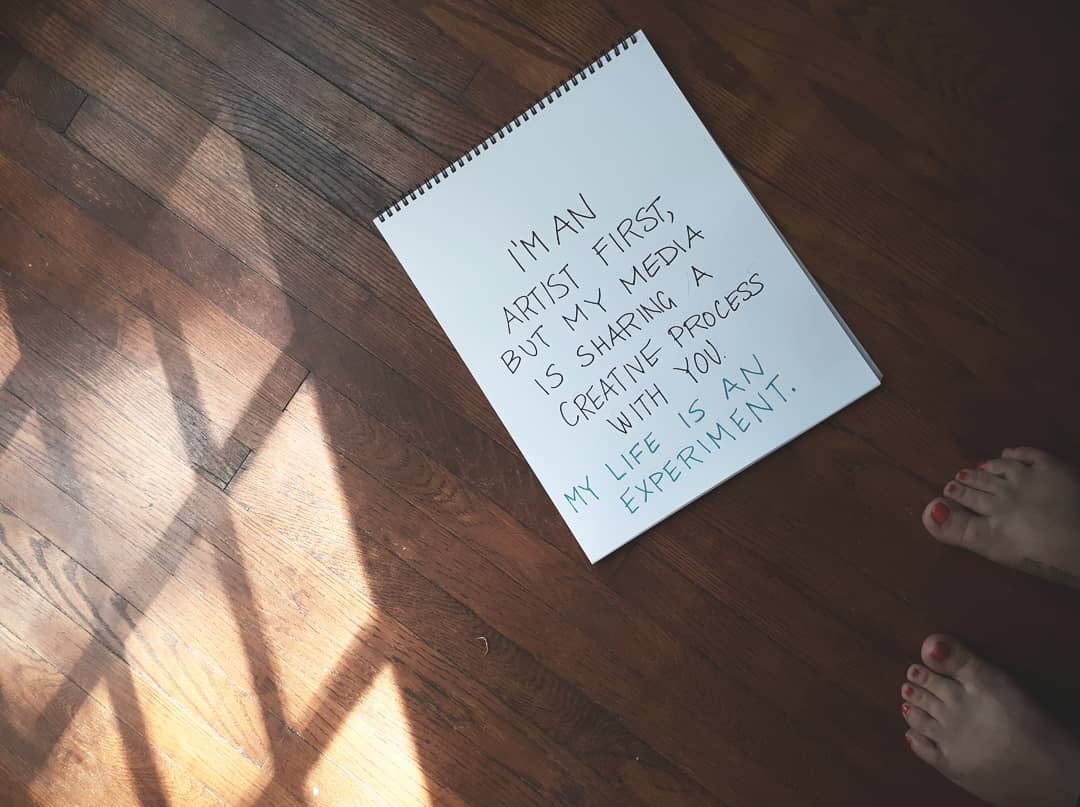 I'M AN
ARTIST FIRST,
BUT MY MEDIA
IS SHARING A
CREATIVE PROCESS
WITH YOU.
MY LIFE IS AN
EXPERIMENT.